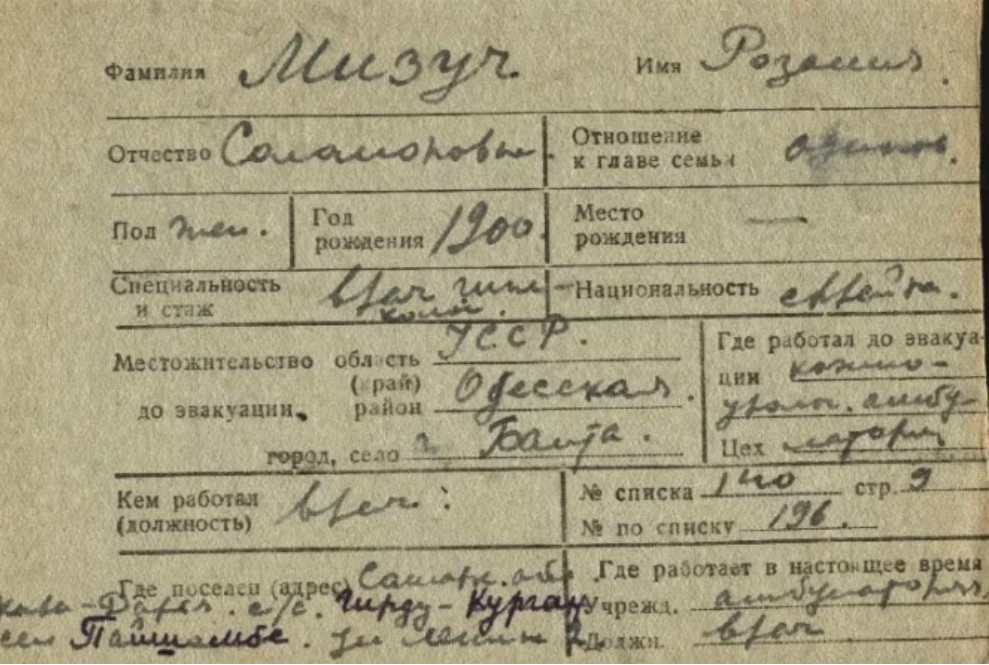 Фамилия Мизуч. Имя Розалия.
Отчество Соламоновн. Отношение к главе семьи одинок.
Пол жен. Год рождения 1900. Место рождения —
Специальность и стаж врач гине- Национальность еврейка.
колог.
Местожительство область УССР. Где работал до эвакуа-
(край) ции кожно-
до эвакуации район Одесская. уролог. амбу-
город, село г. Балта. Цех латория
Кем работал (должность) врач. № списка 140 стр. 9
№ по списку 196.
Где поселен (адрес) Самарк. обл. Где работает в настоящее время
с/с. Гирду-Курган Учрежд. амбулатория
Пайшамбе. ул Ленина Должн. врач